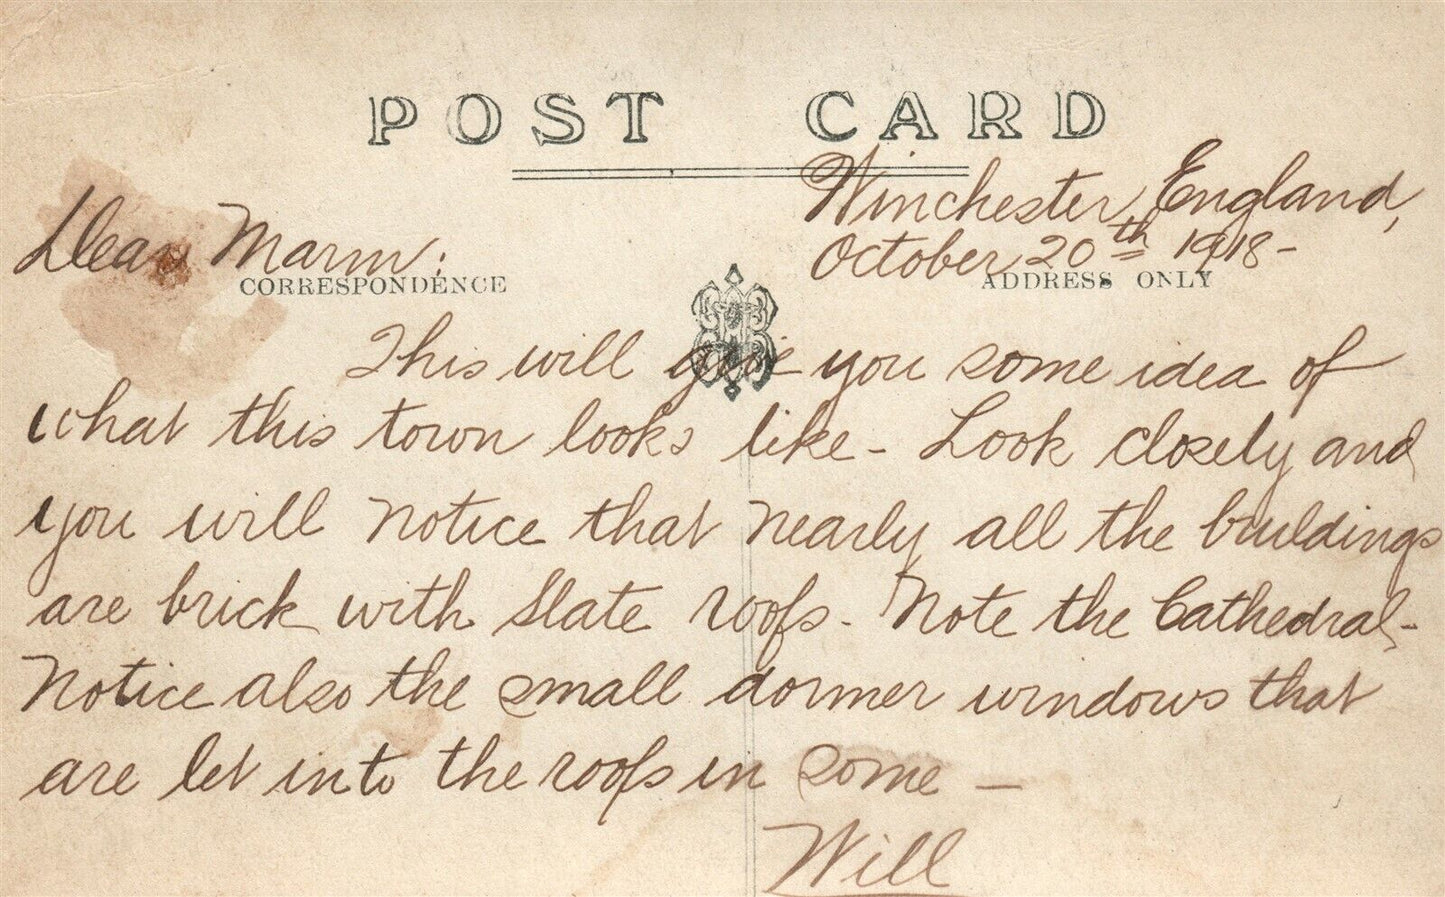 POST CARD
Winchester, England,
October 20th 1918-
Dear Marm:
CORRESPONDENCE
ADDRESS ONLY
This will give you some idea of
what this town looks like - Look closely and
you will notice that nearly all the buildings
are brick with slate roofs - Note the Cathedral -
Notice also the small dormer windows that
are let into the roofs in some —
Will